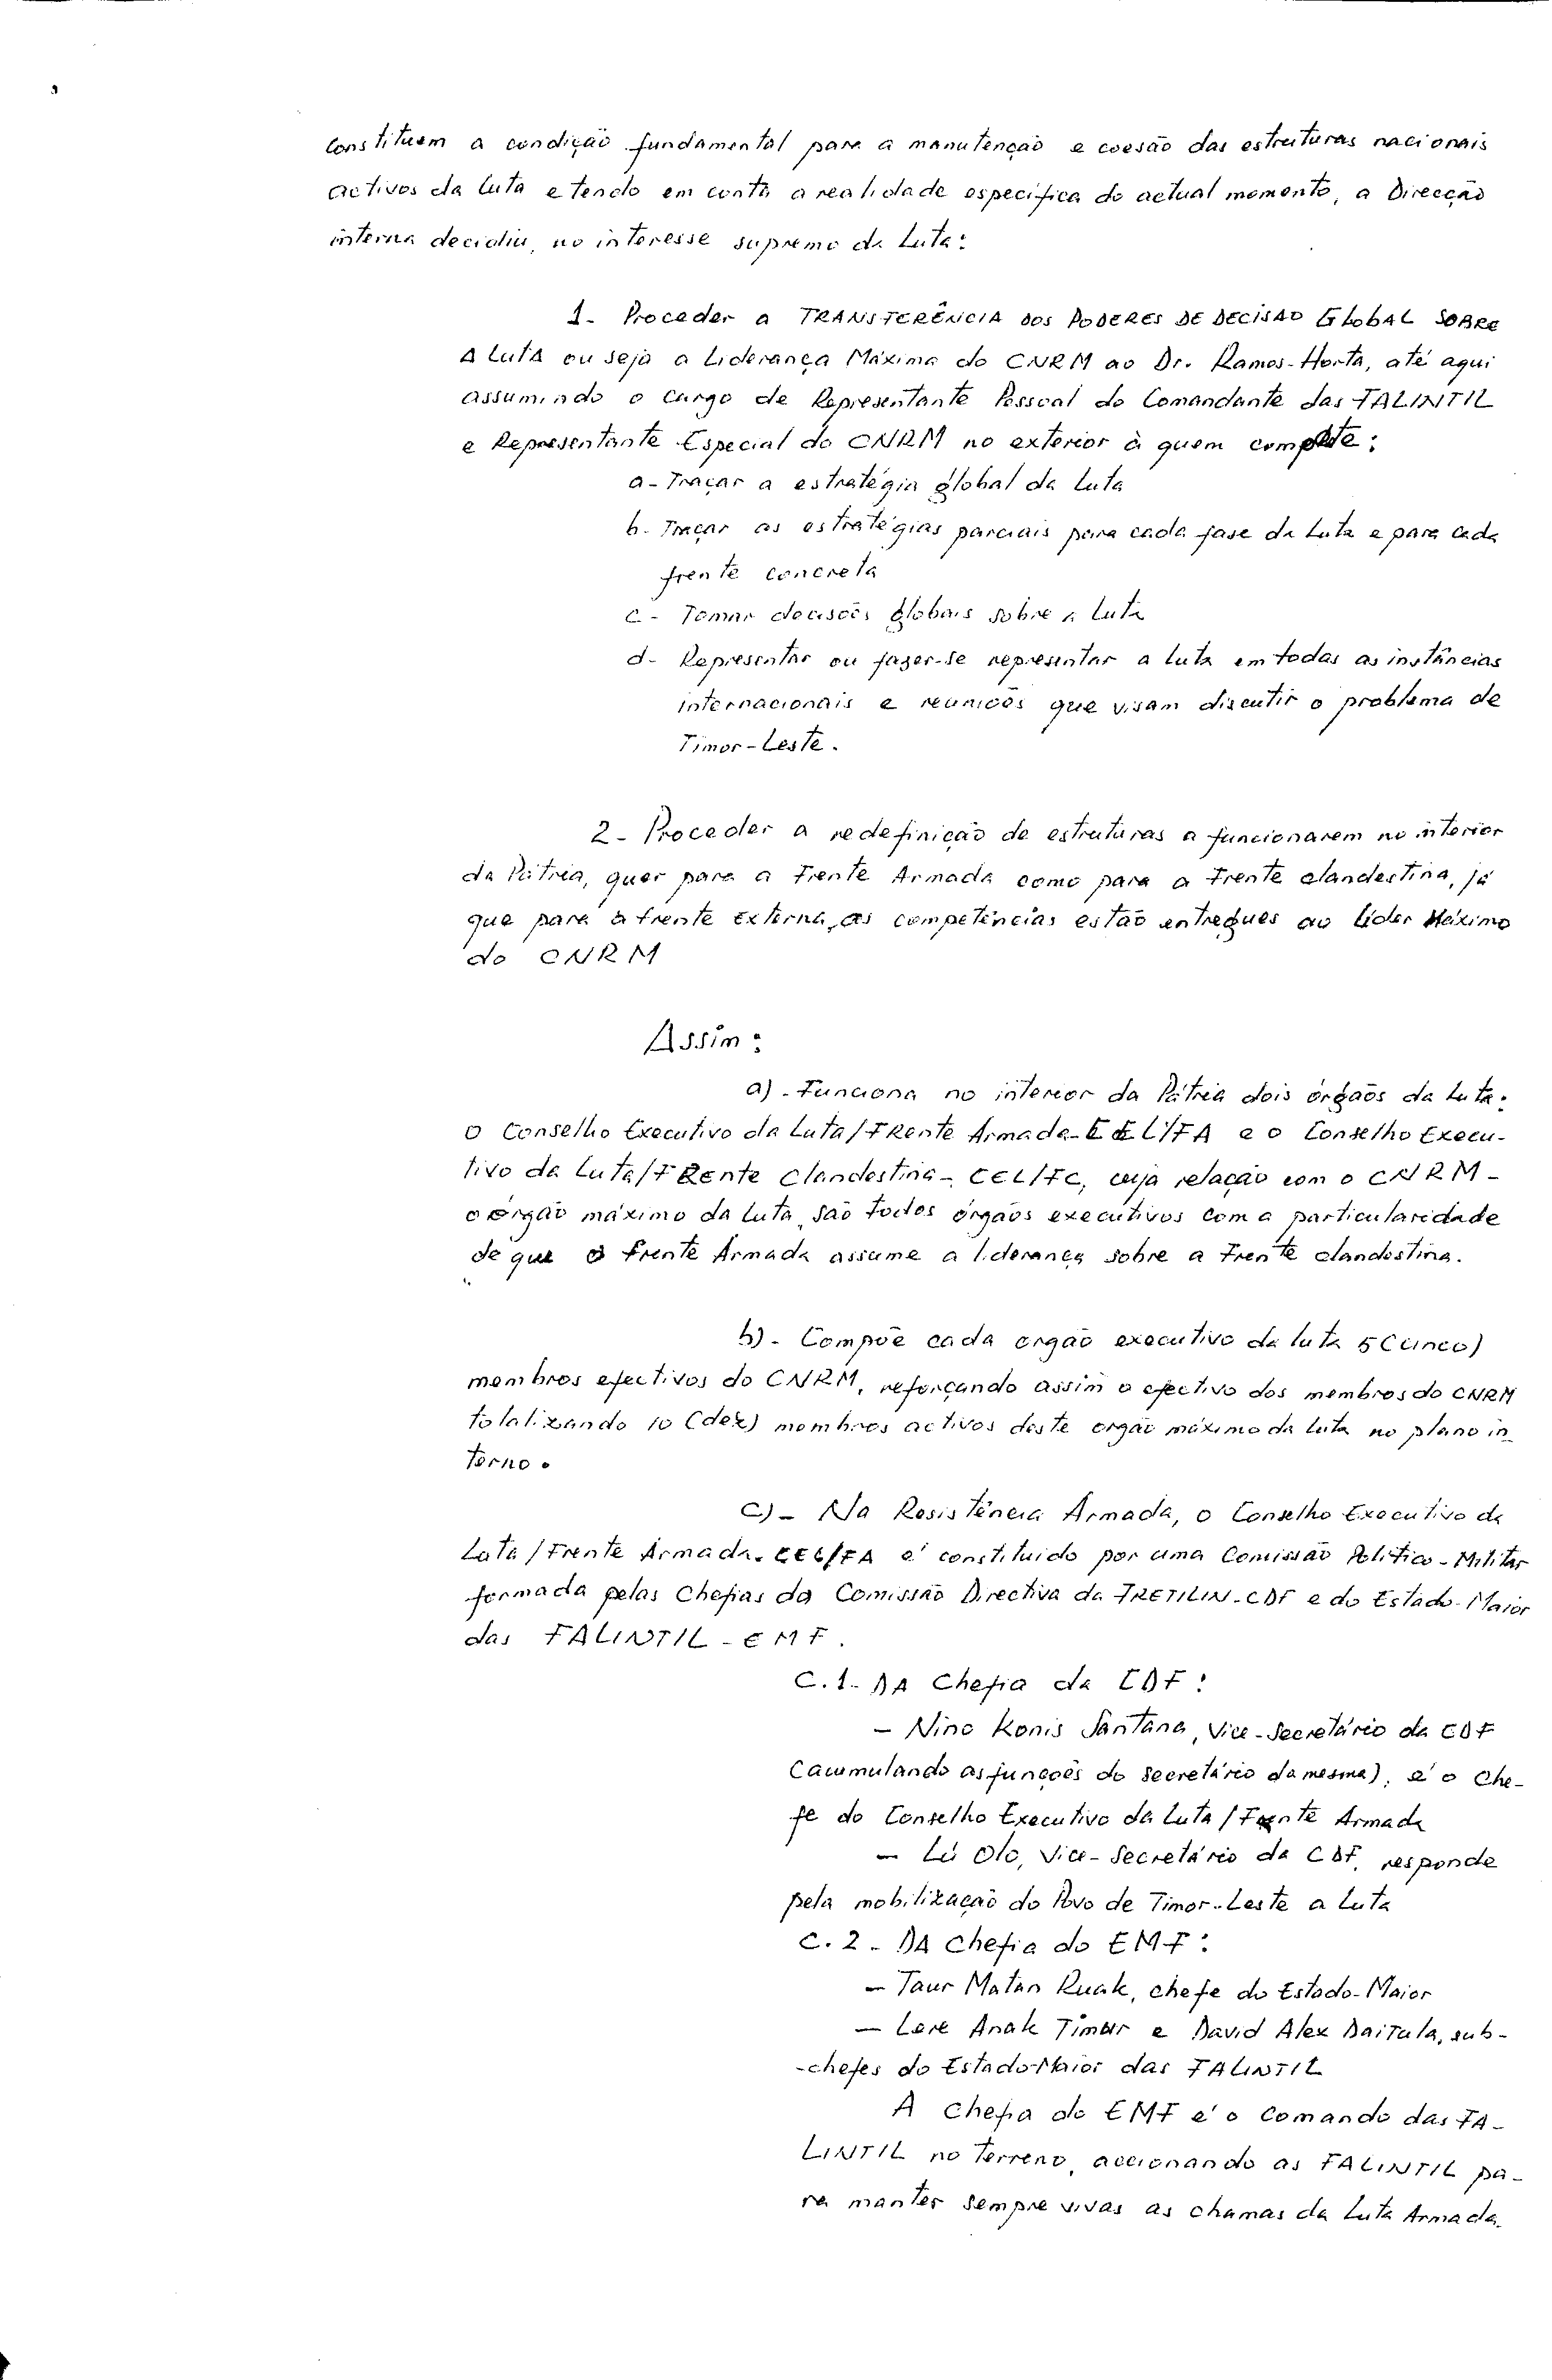 constituem a condição fundamental para a manutenção e coesão das estruturas nacionais
activos da luta e tendo em conta a realidade específica do actual momento, a Direcção
interna decidiu, no interesse supremo da Luta:
1- Proceder a TRANSFERÊNCIA DOS PODERES DE DECISÃO GLOBAL SOBRE
A LUTA ou seja a Liderança Máxima do CNRM ao Dr. Ramos-Horta, até aqui
assumindo o cargo de Representante Pessoal do Comandante das FALINTIL
e Representante Especial do CNRM no exterior à quem compete:
a- Traçar a estratégia global da Luta
b- Traçar as estratégias parciais para cada fase da Luta e para cada
frente concreta
c- Tomar decisões globais sobre a Luta
d- Representar ou fazer-se representar a luta em todas as instâncias
internacionais e reuniões que visam discutir o problema de
Timor-Leste.
2- Proceder a redefinição de estruturas a funcionarem no interior
da Pátria, quer para a Frente Armada como para a Frente clandestina, já
que para a frente Externa, as competências estão entregues ao líder Máximo
do CNRM
Assim:
a)- Funciona no interior da Pátria dois órgãos da Luta:
O Conselho Executivo da Luta/FRente Armada-CEL/FA e o Conselho Execu-
tivo da Luta/FREnte Clandestina- CEL/FC, cuja relação com o CNRM-
o órgão máximo da luta, são todos órgãos executivos com a particularidade
de que a frente Armada assume a liderança sobre a Frente clandestina.
b)- Compõe cada orgão executivo da luta 5 (cinco)
membros efectivos do CNRM, reforçando assim o efectivo dos membros do CNRM
totalizando 10 (dez) membros activos deste orgão máximo da luta no plano in_
terno.
c)- Na Resistência Armada, o Conselho Executivo da
Luta/Frente Armada- CEL/FA é constituido por uma Comissão Político-Militar
formada pelas Chefias da Comissão Directiva da FRETILIN-CDF e do Estado-Maior
das FALINTIL-EMF.
C.1- DA Chefia da CDF:
- Nino Konis Santana, Vice-Secretário da CDF
(acumulando as funções do secretário da mesma), é o Che-
fe do Conselho Executivo da Luta/Frente Armada
- Lú Olo, Vice-Secretário da CDF, responde
pela mobilização do Povo de Timor-Leste a Luta
C.2- DA Chefia do EMF:
- Taur Matan Ruak, chefe do Estado-Maior
- Lere Anak Timur e David Alex Daitula, sub-
-chefes do Estado-Maior das FALINTIL
A Chefia do EMF é o Comando das FA-
LINTIL no Terreno, accionando as FALINTIL pa-
ra manter sempre vivas as chamas da Luta Armada.